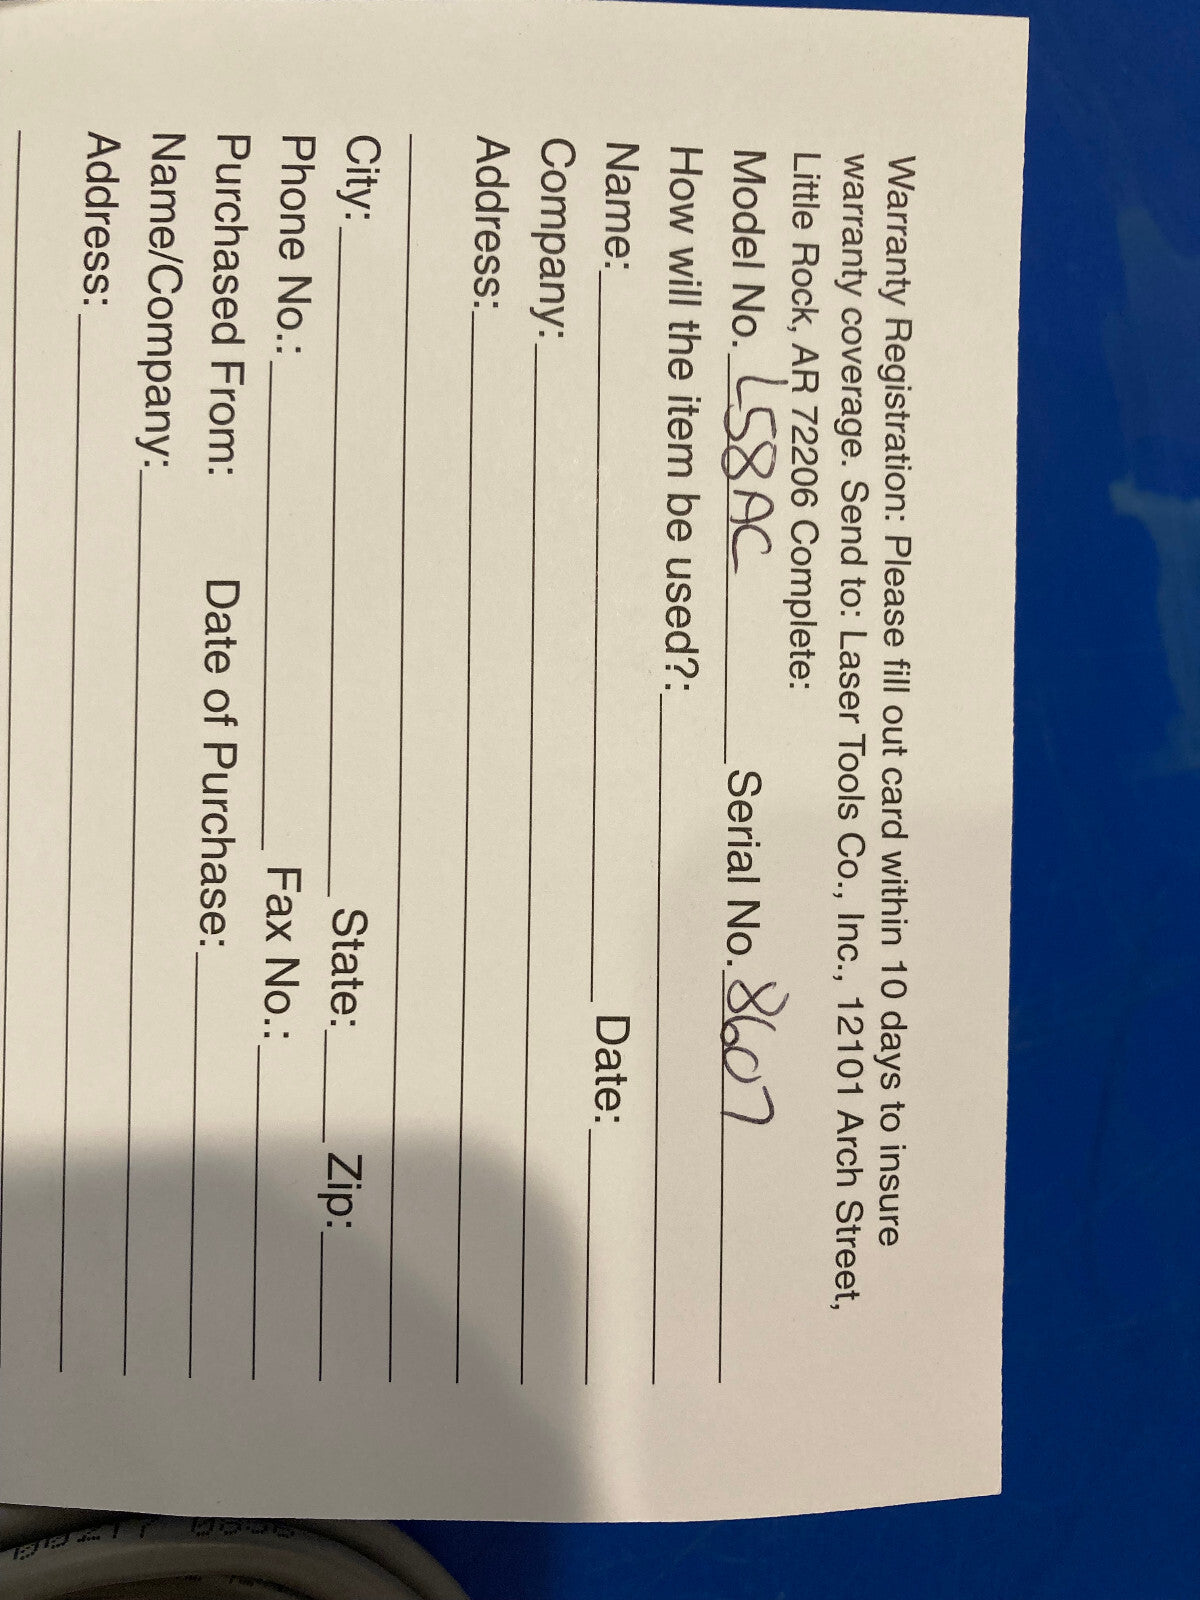 Warranty Registration: Please fill out card within 10 days to insure
warranty coverage. Send to: Laser Tools Co., Inc., 12101 Arch Street,
Little Rock, AR 72206 Complete:
Model No. L58AC Serial No. 8607
How will the item be used?:
Name: Date:
Company:
Address:
City: State: Zip:
Phone No.: Fax No.:
Purchased From: Date of Purchase:
Name/Company:
Address: